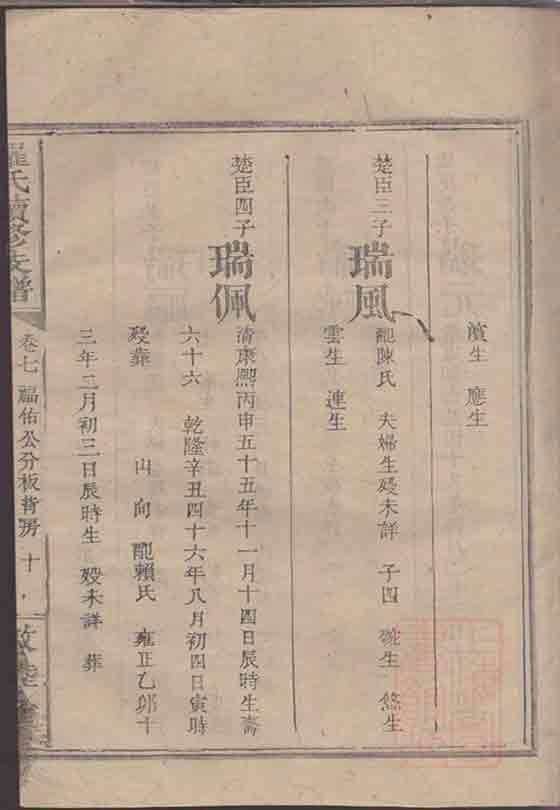 濱生　應生
楚臣三子
瑞風
配陳氏　夫婦生歿未詳　子四　生　悠生
雲生　連生
楚臣四子
瑞佩
清康熙丙申五十五年十一月十四日辰時生壽
六十六　乾隆辛丑四十六年八月初四日寅時
歿葬　山　向　配賴氏　雍正乙卯十
三年二月初三日辰時生　歿未詳　葬
羅氏續修支譜
卷七　福佑公分板背房　十
敦睦